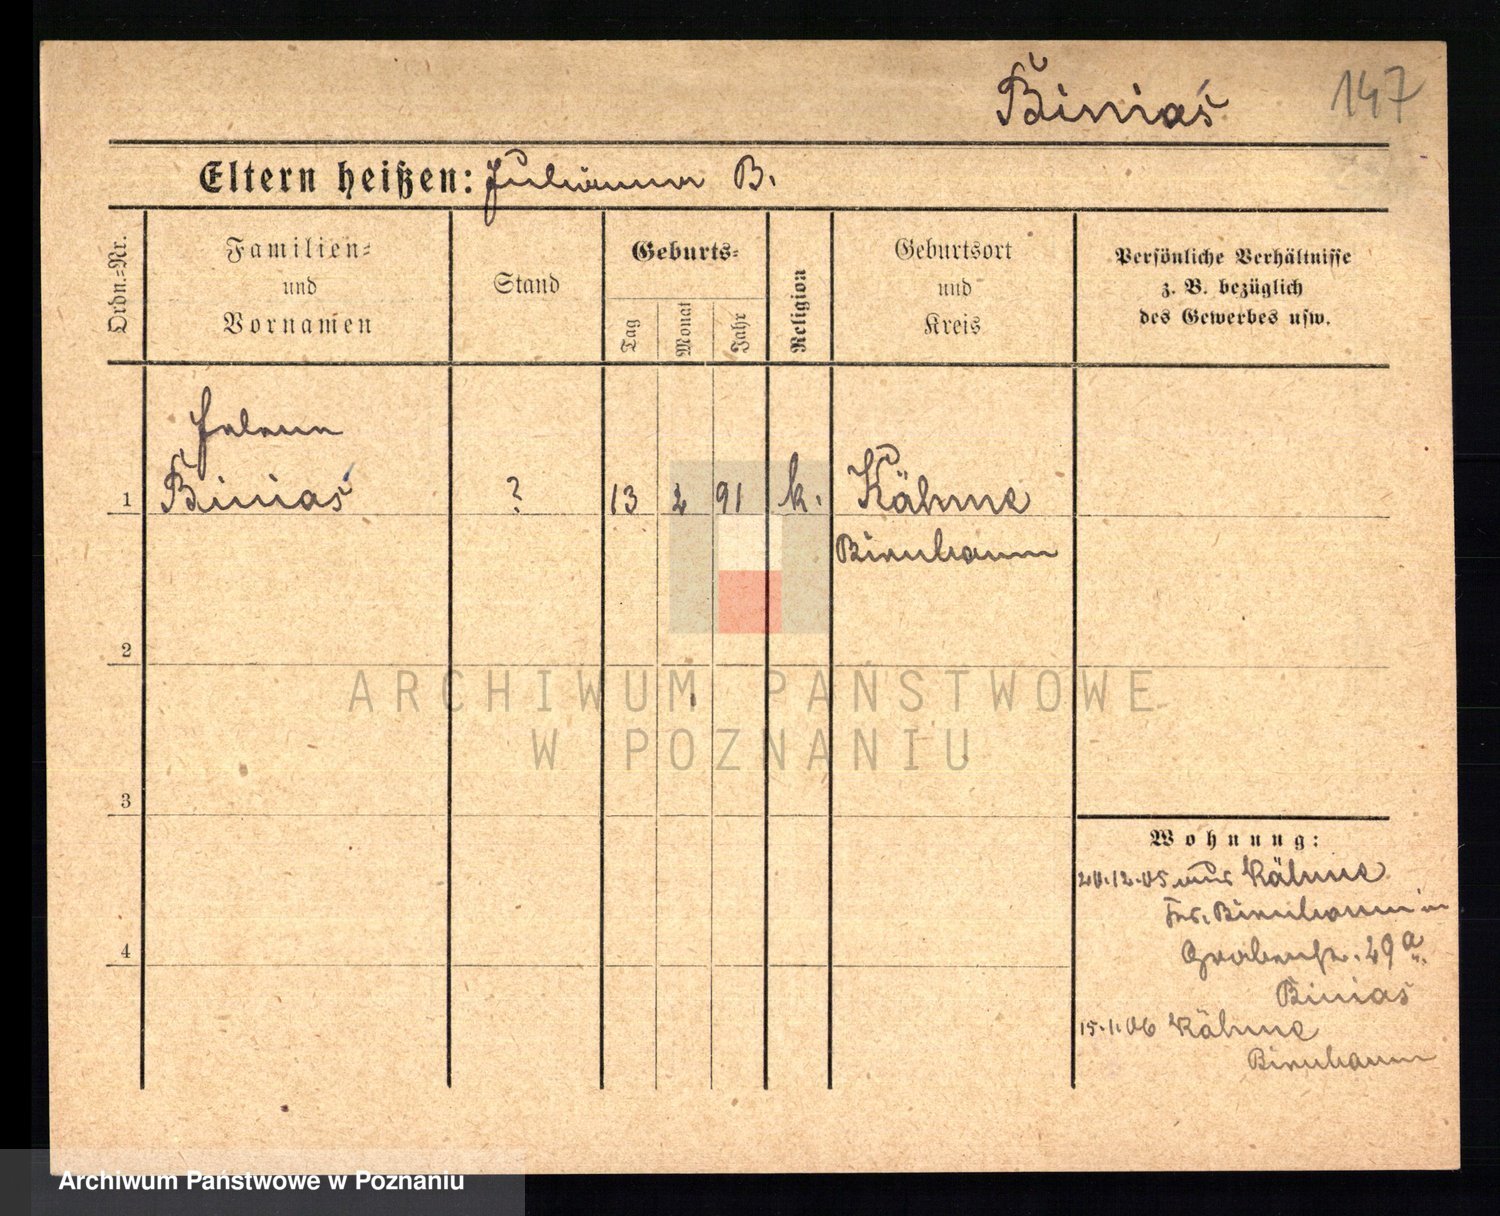 Biniaś 147
Eltern heißen: Julianna B.
Ordn.=Nr.
Familien=
und
Vornamen
Stand
Geburts=
Tag
Monat
Jahr
Religion
Geburtsort
und
Kreis
Persönliche Verhältnisse
z. B. bezüglich
des Gewerbes usw.
Helene
1 Biniaś ? 13 2 91 k. Kähme
Birnbaum
2
ARCHIWUM PAŃSTWOWE
W POZNANIU
3
4
Wohnung:
20.12.05 aus Kähme
Krs. Birnbaum in
Grabenstr. 29a
Binias
15.1.06 Kähme
Birnbaum
Archiwum Państwowe w Poznaniu